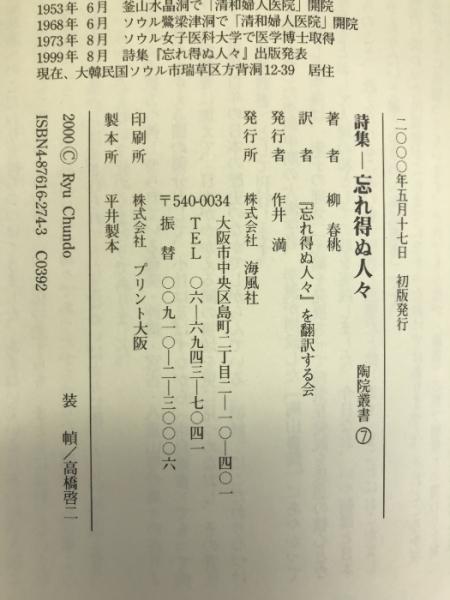 1953年 6月 釜山水晶洞で「清和婦人医院」開院
1968年 6月 ソウル鷺梁津洞で「清和婦人医院」開院
1973年 8月 ソウル女子医科大学で医学博士取得
1999年 8月 詩集『忘れ得ぬ人々』出版発表
現在、大韓民国ソウル市瑞草区方背洞12-39 居住
二〇〇〇年五月十七日 初版発行
詩集―忘れ得ぬ人々 陶院叢書⑦
著者 柳 春桃
訳者 『忘れ得ぬ人々』を翻訳する会
発行者 作井 満
発行所 株式会社 海風社
大阪市中央区島町二丁目二―一〇―四〇一
〒540-0034 TEL 〇六―六九四三―七〇四一
振替 〇〇九一〇―二―三〇〇〇六
印刷所 株式会社 プリント大阪
製本所 平井製本
2000© Ryu Chundo
ISBN4-87616-274-3 C0392
装幀/高橋啓二